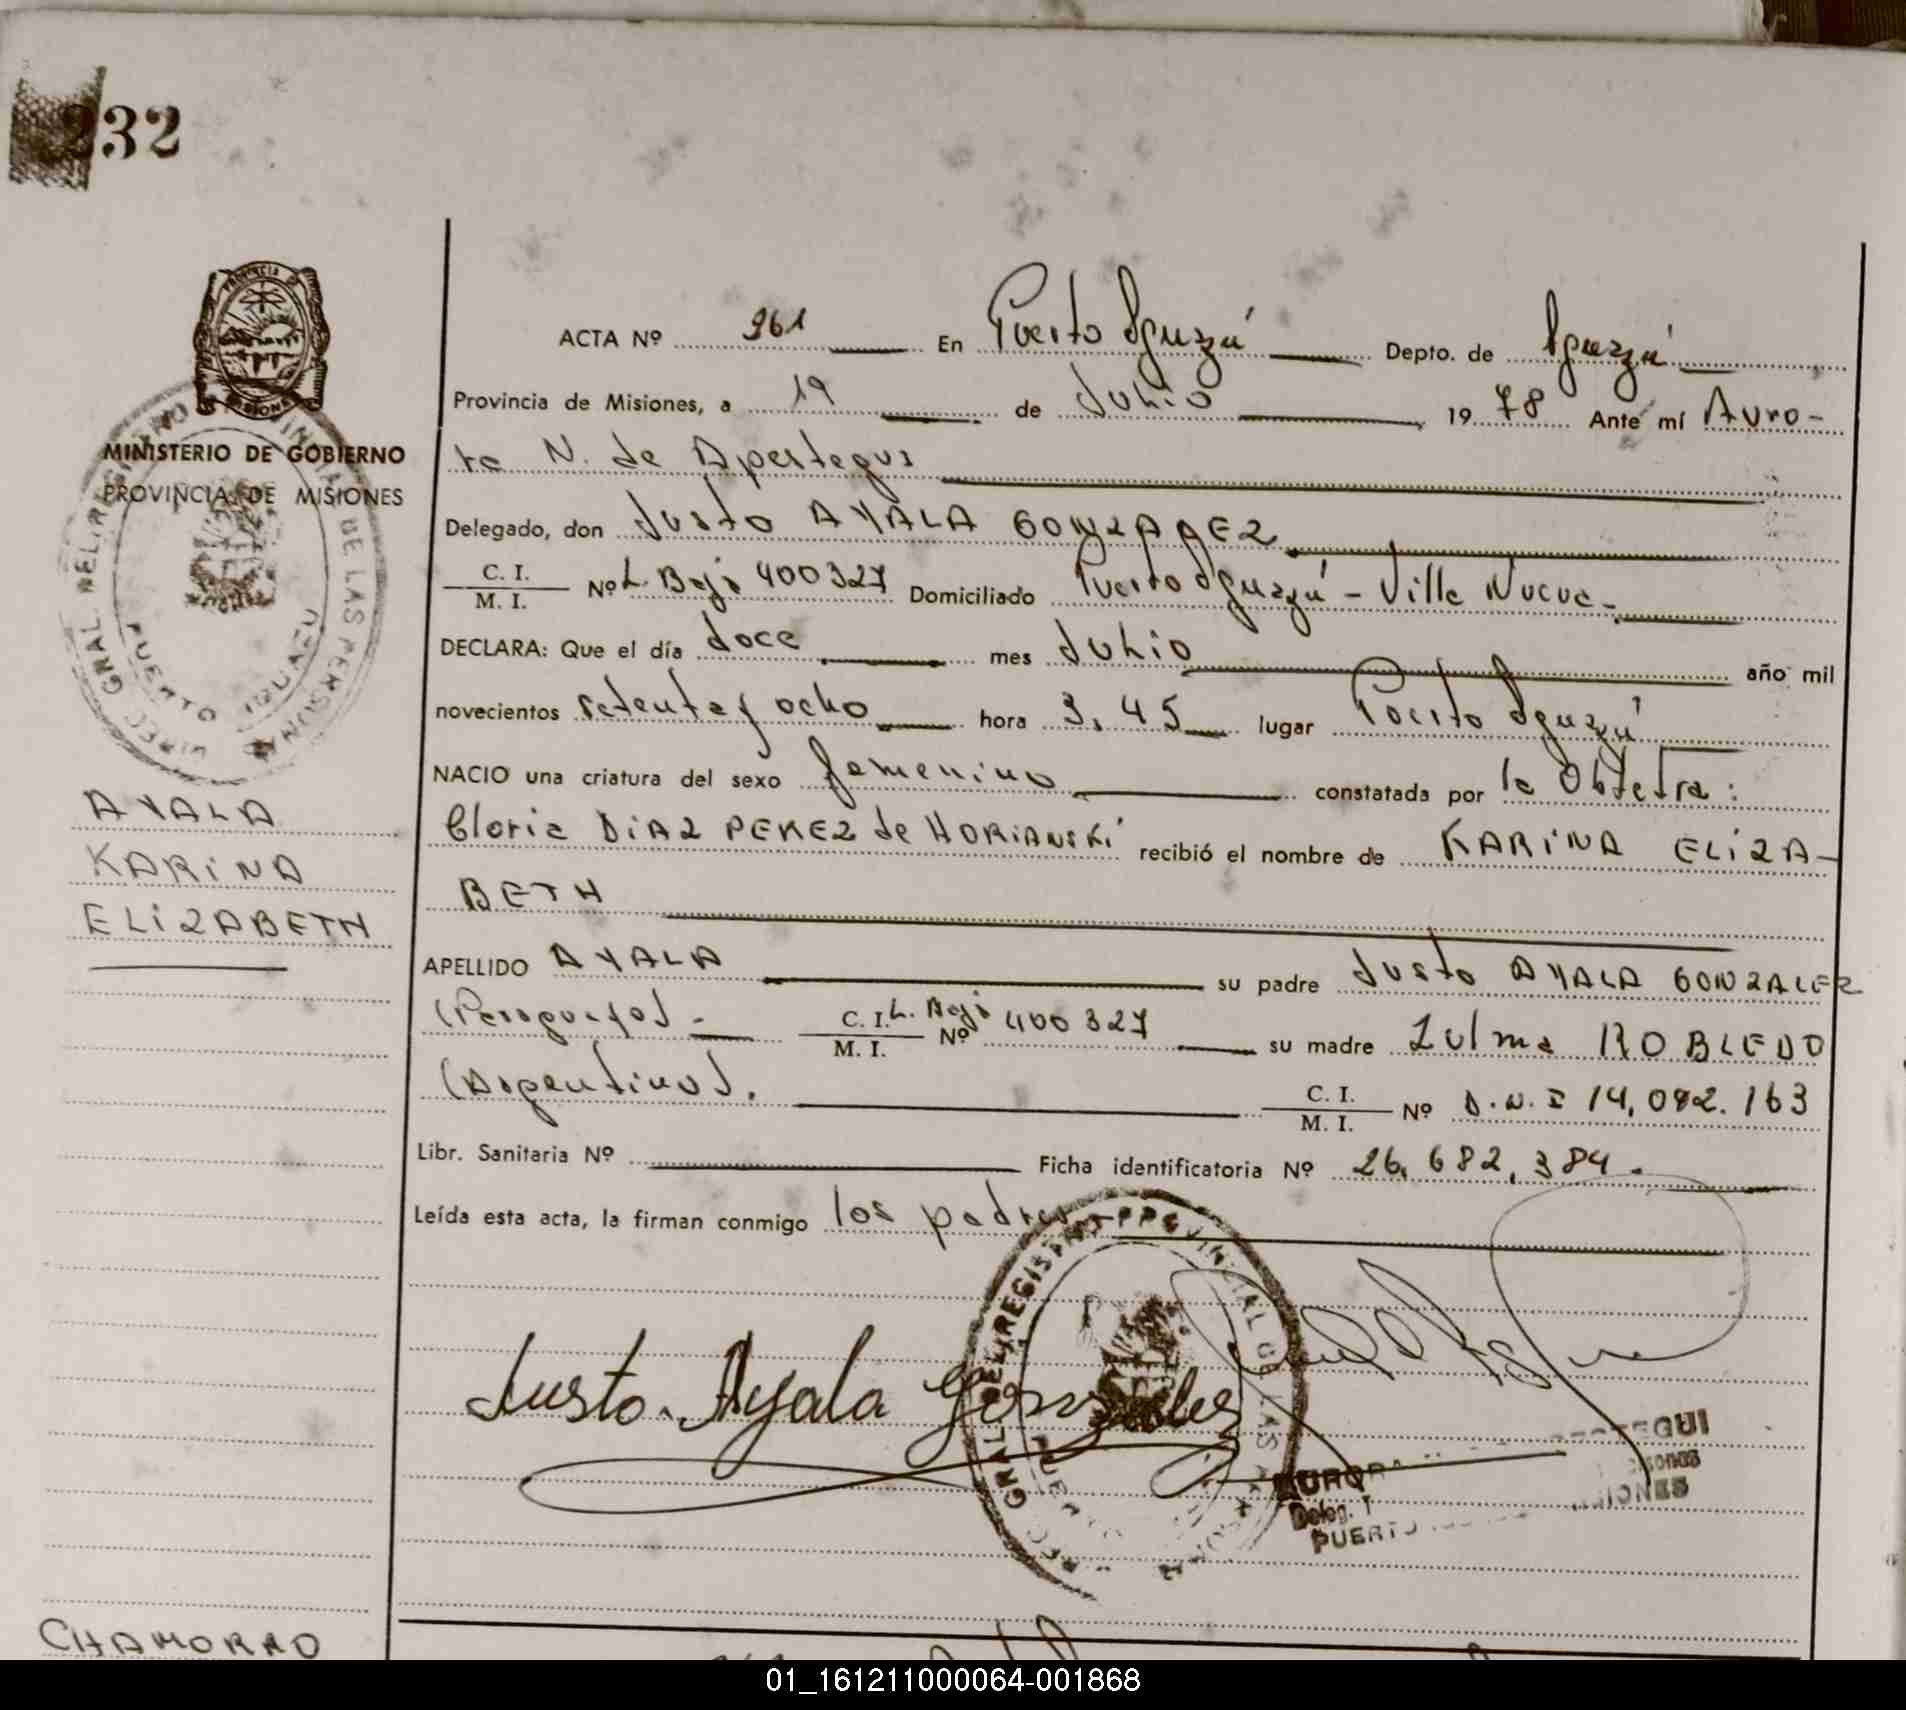 232
MINISTERIO DE GOBIERNO
PROVINCIA DE MISIONES
AYALA
KARINA
ELIZABETH
ACTA Nº 961 En Puerto Iguazú Depto. de Iguazú
Provincia de Misiones, a 19 de Julio 1978 Ante mí Auro-
ra N. de Apestegui
Delegado, don Justo AYALA GONZALEZ
C. I. / M. I. Nº L. Baja 400327 Domiciliado Puerto Iguazú - Villa Nueva-
DECLARA: Que el día doce mes Julio año mil
novecientos setenta y ocho hora 3,45 lugar Puerto Iguazú
NACIO una criatura del sexo femenino constatada por la Obstetra:
Gloria DiAZ PEREZ de HORiANSKi recibió el nombre de KARiNA ELiZA-
BETH
APELLIDO AYALA su padre Justo AYALA GONZALEZ
(Paraguayo)- C. I. / M. I. Nº L. Baja 400327 su madre Zulma ROBLEDO
(Argentina). C. I. / M. I. Nº D.N.I 14,092.163
Libr. Sanitaria Nº Ficha identificatoria Nº 26,682,384.
Leída esta acta, la firman conmigo los padres
Justo Ayala González
DIREC. GRAL. DEL REGISTRO PROVINCIAL DE LAS PERSONAS
PUERTO IGUAZU
AURORA
Deleg. T
PUERTO
CHAMORRO
01_161211000064-001868